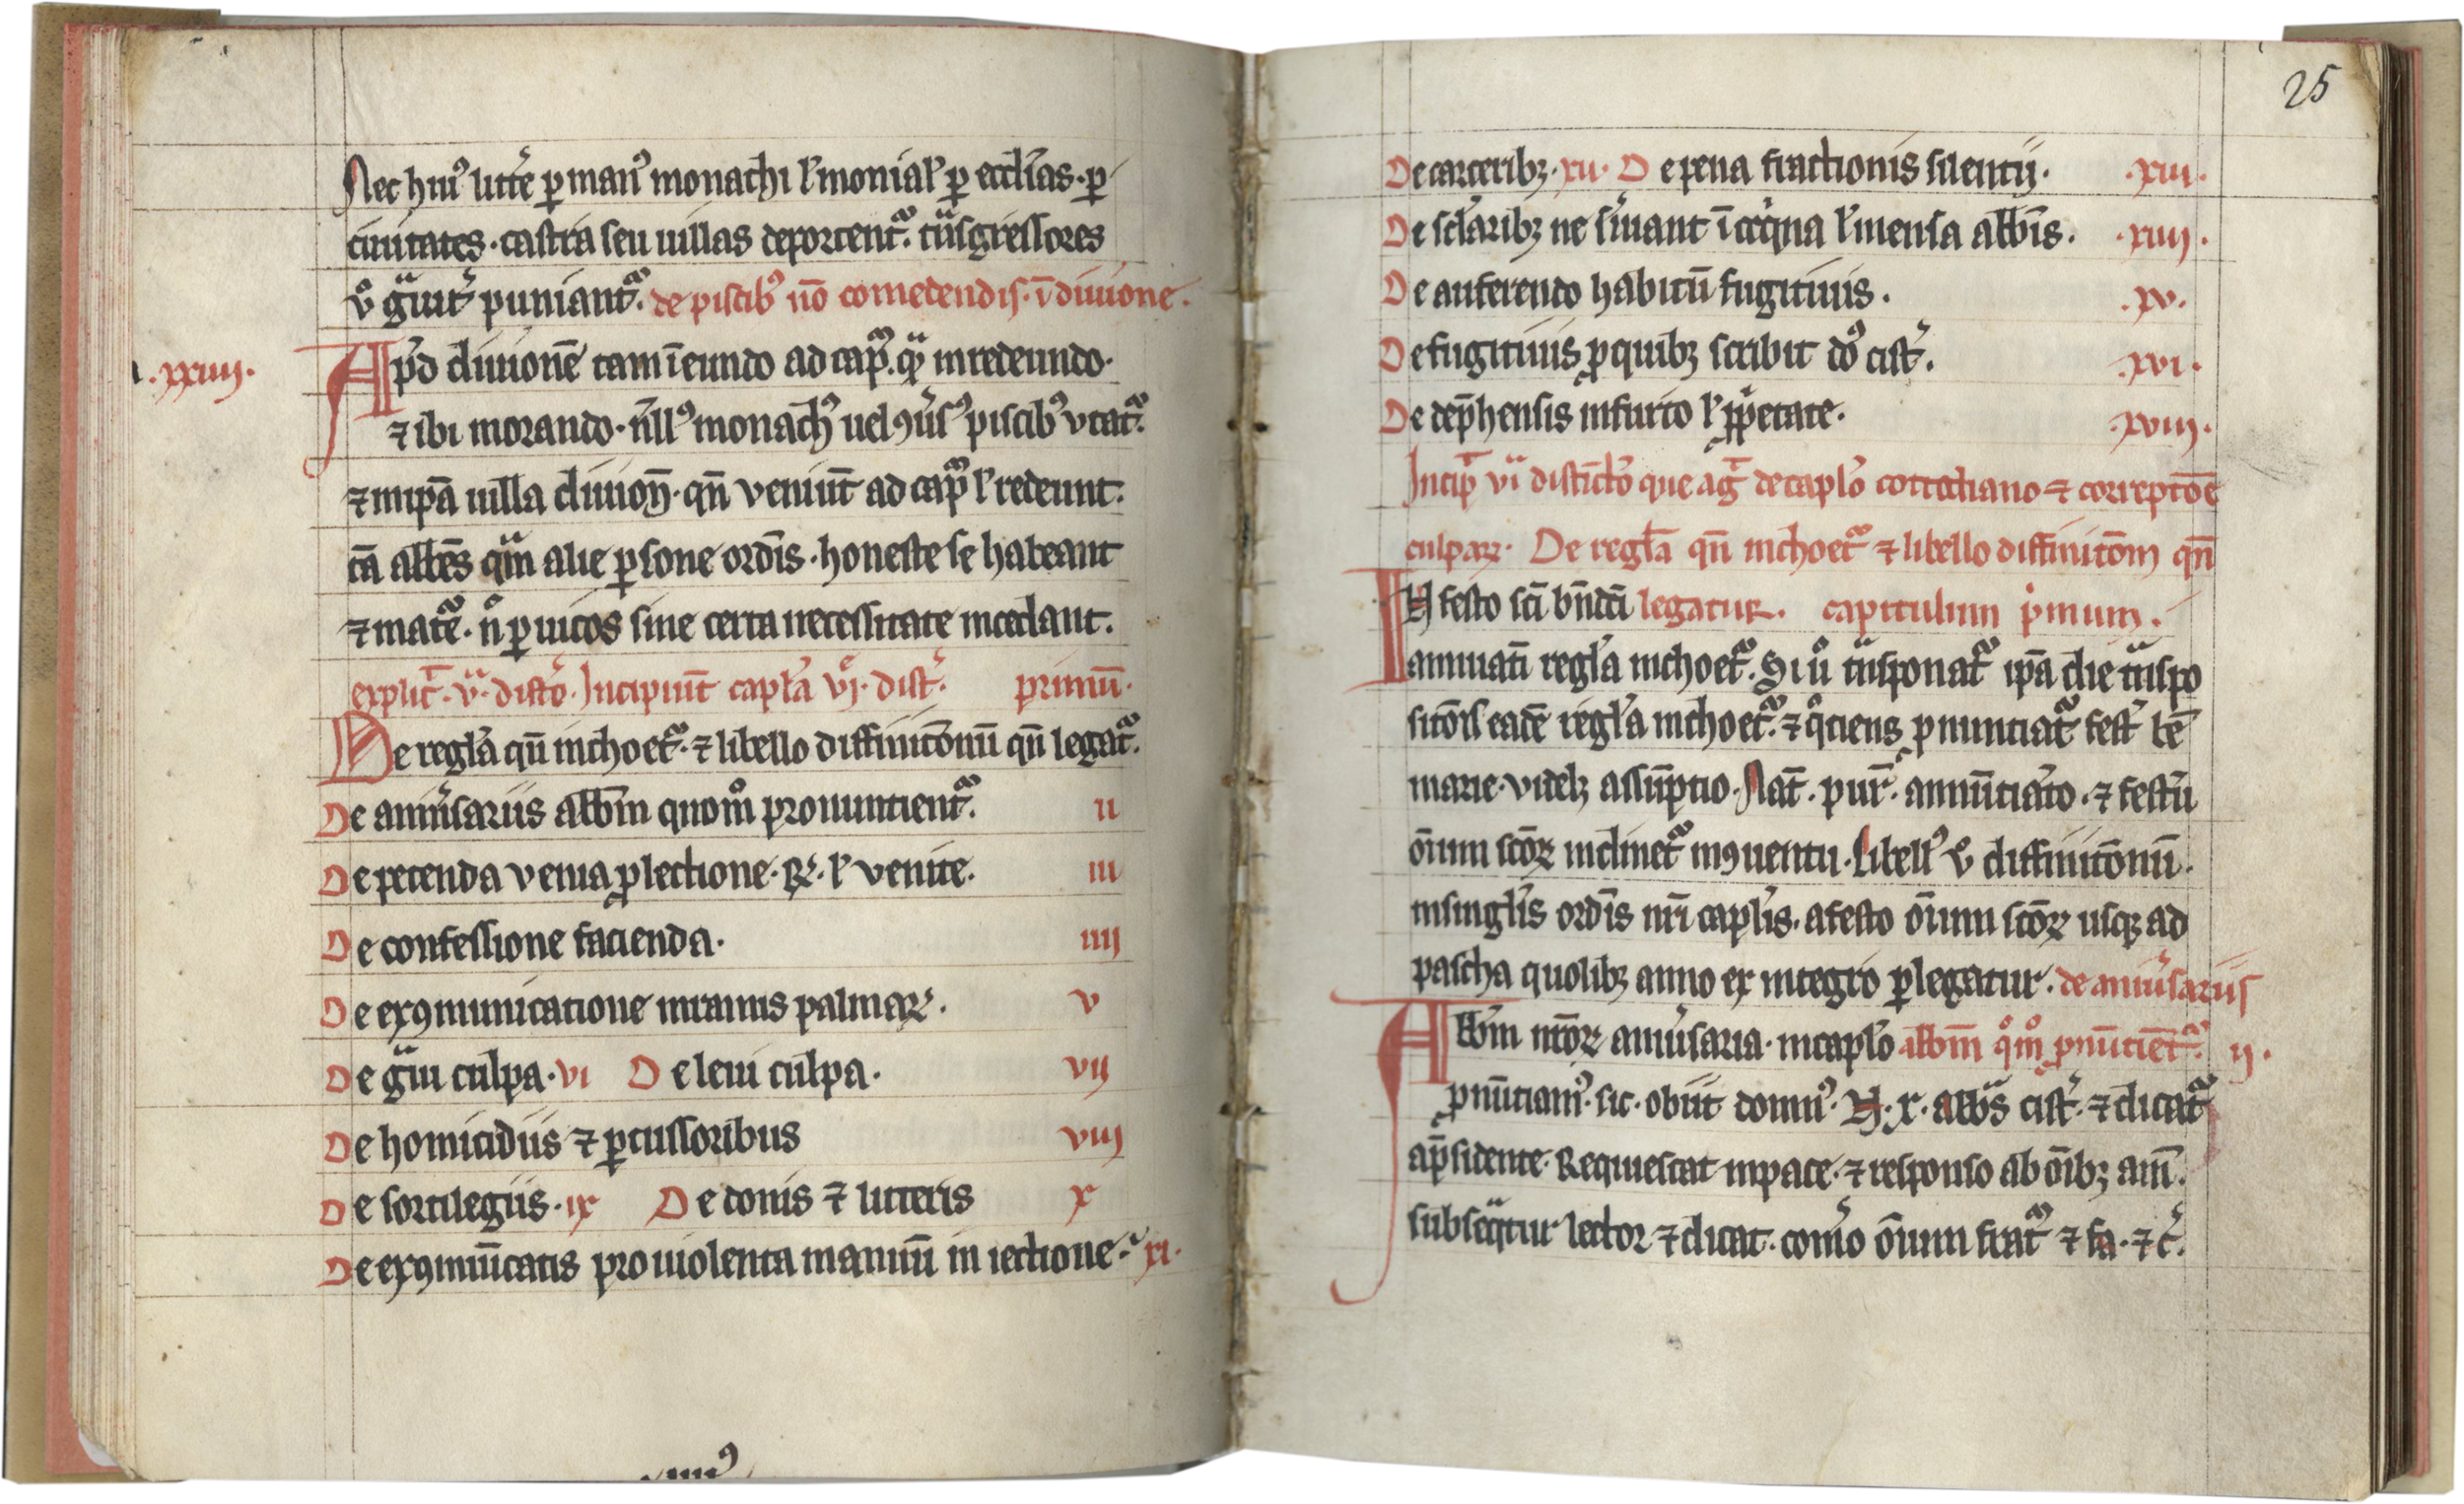 Nec hiuꝰ litt̾e ꝑ manꝰ monachi lˀ monialˀ ꝑ eccl̾ias · ꝑ
ciuitates · castra seu uillas deportent᷑ · tͣnsgressores
vͦ gͣuit̾ puniant᷑ · de piscibꝰ nō comedendis · ī diuione .
. xxiiii .
Apͩ diuionē tam ī eundo ad cap̾ . qͣ in redeundo ·
⁊ ibi morando · n̄ll̾ꝰ monachꝰ uel ꝯu̾sꝰ piscibꝰ vtat᷑
⁊ in ip̄a uilla diuion̄ · qn̄ veniūt ad cap̾ lˀ redeunt :
tā abb̄es qͣm alie ꝑsone ordīs · honeste se habeant
⁊ mat̾e · n̄ ꝑ uicos sine certa necessitate incedant .
explic̄ · vͣ · distc̄o · Incipiūt capl̾a vj · dist̾ . primū ·
De regl̾a qn̄ inchoet᷑ · ⁊ libello diffinitōnū qn̄ legat᷑ .
De anniu̾sariis abb̄m quomͦ pronuntient᷑ . ii
De petenda venia ꝓ lectione · R̾ · lˀ venite . iii
De confessione facienda · iiii
De exꝯmunicatione in ramis palmaꝝ . v
De gͣui culpa · vi De leui culpa · vij
De homicidiis ⁊ ꝑcussoribus viii
De sortilegiis · ix De donis ⁊ litteris x
De exꝯmūicatis pro uiolenta manuū in iectione · xi ·
25
De carceribꝫ · xii · De pena fractionis silentij · · xiii ·
De scl̾aribꝫ ne s̾uiant ī coqͥna lˀ mensa abb̄is . · xiiii ·
De auferendo habitū fugitiuis . · xv ·
De fugitiuis ꝓ quibꝫ scribit dōꝰ cist̾ . · xvi ·
De dep̄hensis in furto lˀ ꝓp̾etate · · xviii ·
Incip̄ viͣ distīctō que ag̾ de capl̾o cottidiano ⁊ correptōe
culpaꝝ · De regl̾a qn̄ inchoet᷑ ⁊ libello diffinitōm qn̄
IN festo sc̄i bn̄dc̄i legatur . capitulum pͥmum .
annuatī regl̾a inchoet᷑ . Si vͦ tͣnsponat᷑ ip̄a die tͣnspo
sitōis eadē regl̾a inchoet᷑ · ⁊ qͦtiens ꝓnunciat᷑ fest̾ bē
marie · videlꝫ assūptio · Nat̄ · pur̄ · annūtiatō · ⁊ festū
om̄um scōꝝ inclinet᷑ in ꝯuentu · Libellꝰ vͦ diffinitōnū .
in singl̾is ordīs nr̄i capl̾is · a festo om̄um scōꝝ usqꝫ ad
pascha quolibꝫ anno ex integro ꝑlegatur · de anniu̾sariis
Abb̄m nr̄oꝝ anniu̾saria · in capl̾o abb̄m qͦmͦ ꝓnūtiet᷑ ij ·
ꝓnūtiamꝰ · sic · obiit domnꝰ · N · x · abb̄s cist̾ · ⁊ dicat᷑
a p̄sidente · Requiescat in pace · ⁊ responso ab om̄ibꝫ am̄ .
subseqͣtur lector ⁊ dicat · com̾o om̄um frat᷑ ⁊ fa · ⁊ c̾ .